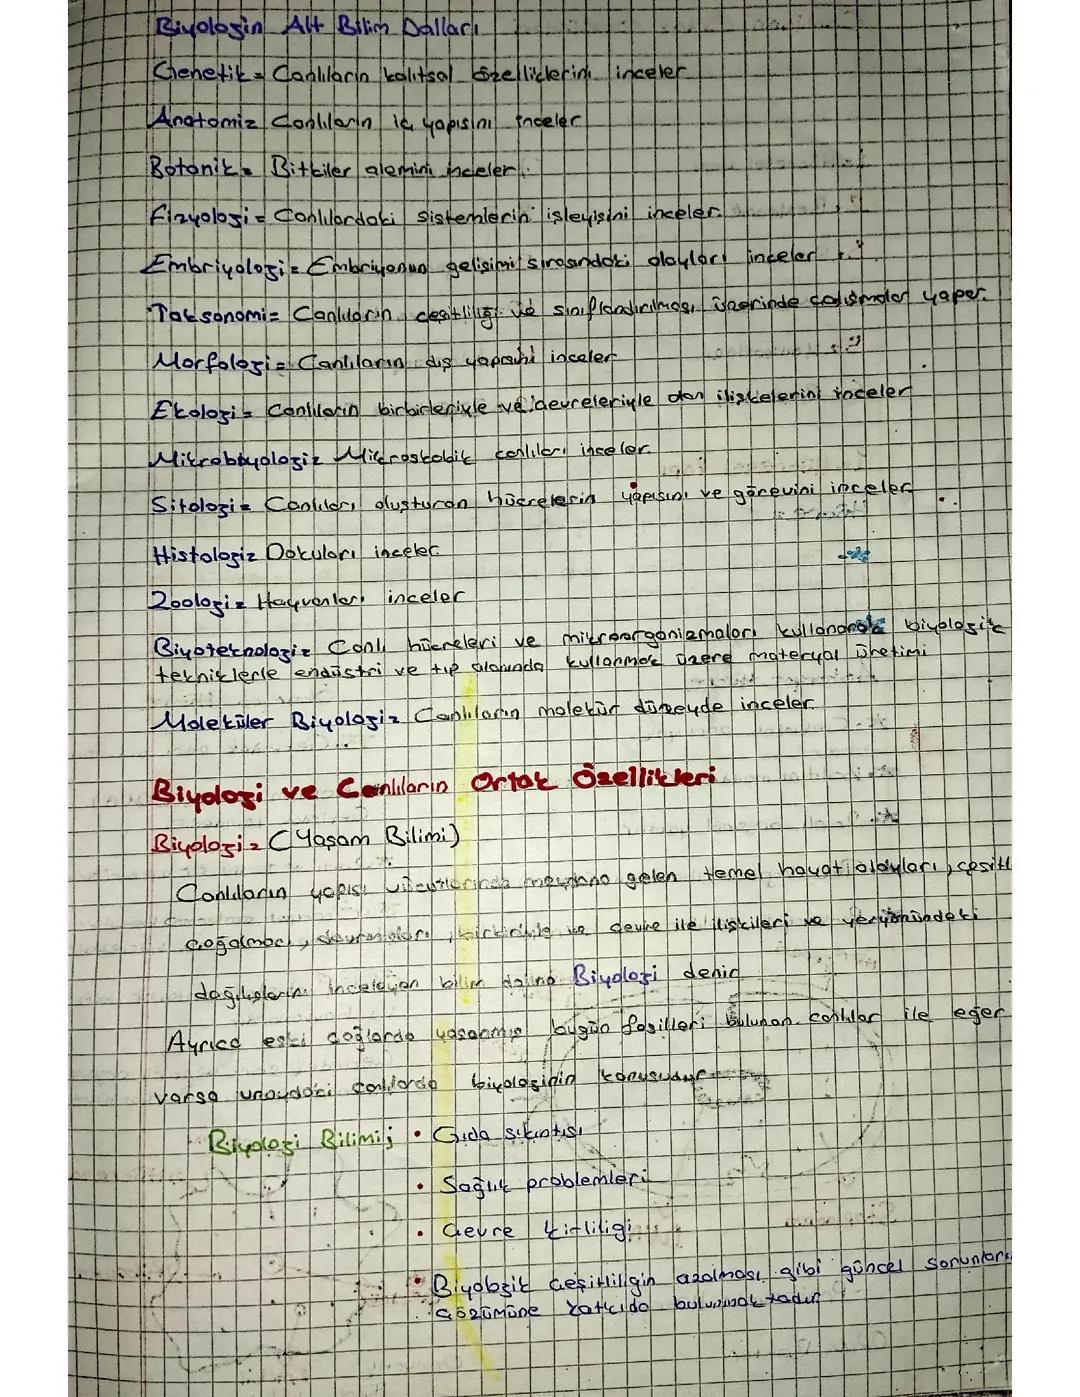 Biyolojin Alt Bilim Dalları
Genetik = Canlıların kalıtsal özelliklerini inceler
Anatomi = Canlıların iç yapısını inceler
Botanik = Bitkiler alemini inceler.
Fizyoloji = Canlılardaki sistemlerin işleyişini inceler.
Embriyoloji = Embriyonun gelişimi sırasındaki olayları inceler
Taksonomi = Canlıların çeşitliliği ve sınıflandırılması üzerinde çalışmalar yapar.
Morfoloji = Canlıların dış yapısını inceler
Ekoloji = Canlıların birbirleriyle ve çevreleriyle olan ilişkelerini inceler
Mikrobiyoloji = Mikroskobik canlıları inceler.
Sitoloji = Canlıları oluşturan hücrelerin yapısını ve görevini inceler
Histoloji = Dokuları inceler
Zooloji = Hayvanları inceler
Biyoteknoloji = Canlı hücreleri ve mikroorganizmaları kullanarak biyolojik
tekniklerle endüstri ve tıp alanında kullanmak üzere materyal üretimi
Moleküler Biyoloji = Canlıların molekür düzeyde inceler.
Biyoloji ve Canlıların Ortak Özellikleri
Biyoloji = (Yaşam Bilimi)
Canlıların yapısı vücutlarında meydana gelen temel hayat olayları, çeşitl
çoğalmaları, davranışları, birbiriyle ve çevre ile ilişkileri ve yeryüzündeki
dağılışlarını inceleyen bilim dalına Biyoloji denir
Ayrıca eski çağlarda yaşanmış bugün fosilleri bulunan canlılar ile eğer
varsa canlılarda biyolojinin konusudur
Biyoloji Bilimi; • Gıda sıkıntısı
• Sağlık problemleri
• Çevre kirliliği
• Biyolojik çeşitliliğin azalması gibi güncel sorunların
çözümüne katkıda bulunmaktadır